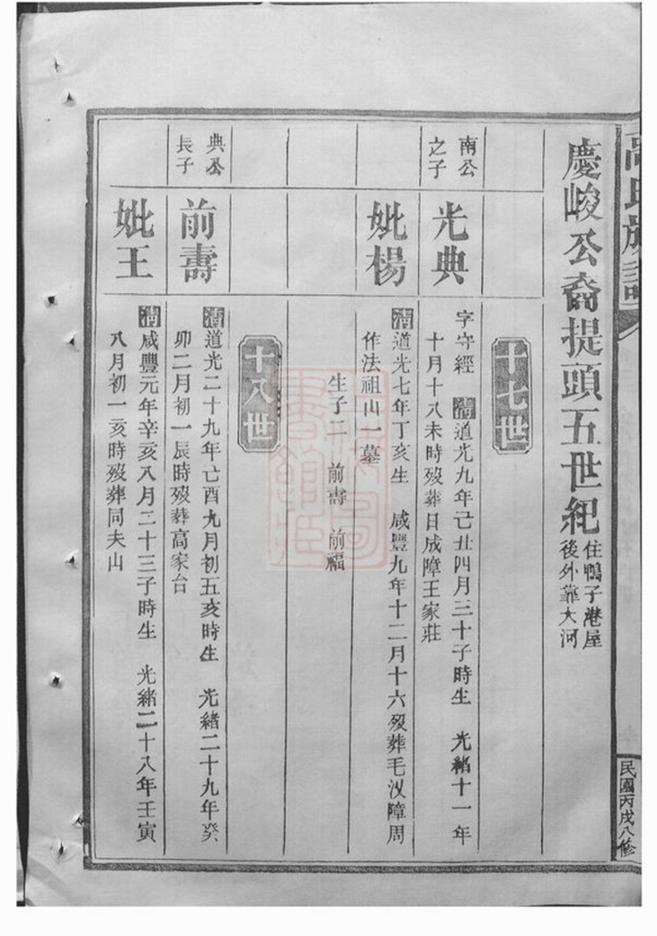 高氏族譜
民國丙戌八修
慶峻公裔提頭五世紀
住鴨子港屋
後外靠大河
十七世
南公
之子
光典
字守經 清道光九年己丑四月三十子時生 光緒十一年
十月十八未時歿葬日成障王家莊
妣楊
清道光七年丁亥生 咸豐九年十二月十六歿葬毛汊障周
作法祖山一墓
生子二 前壽 前福
十八世
典公
長子
前壽
清道光二十九年己酉九月初五亥時生 光緒二十九年癸
卯二月初一辰時歿葬高家台
妣王
清咸豐元年辛亥八月二十三子時生 光緒二十八年壬寅
八月初一亥時歿葬同夫山